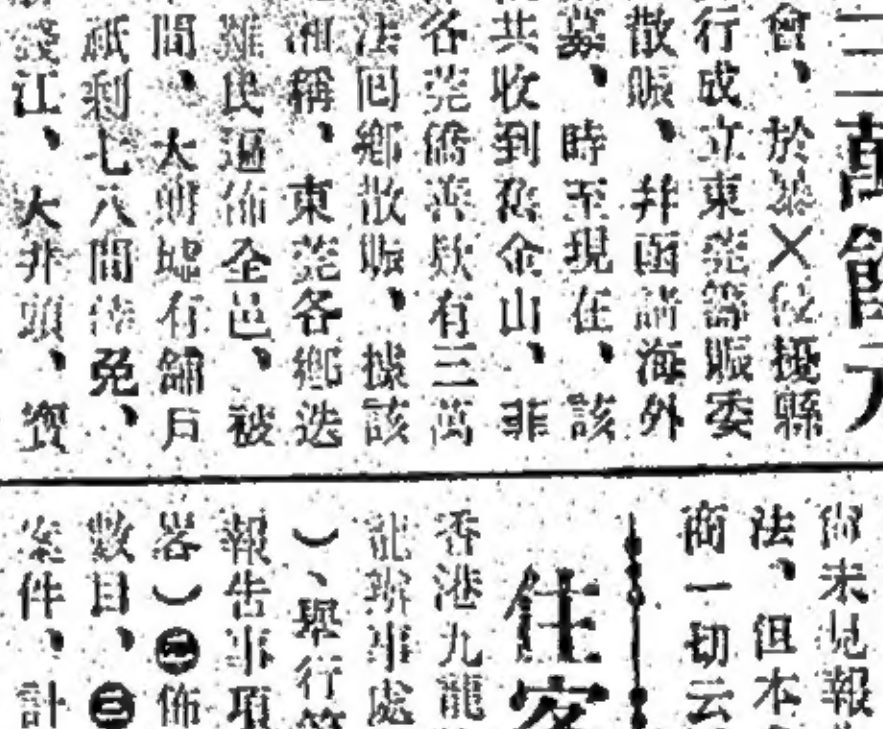 三萬餘元
會、於㷫×侵擾縣
行成立東莞籌賑委
散賑、并函請海外
募、時至現在、該
共收到舊金山、菲
各莞僑善欵有三萬
法回鄉散賑、據該
湘稱、東莞各鄉迭
難民遍佈全邑、被
間、大朗墟有舖戶
祇剩七八間倖免、
江、大井頭、
尙未見報
法、但本
商一切云
住客
香港九龍
龍辦事處
）、舉行
報告事項
畧）㊁佈
數目、㊂
案件、計